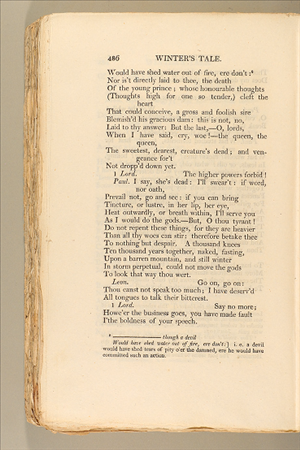 486 WINTER'S TALE.
Would have shed water out of fire, ere don't:⁴
Nor is't directly laid to thee, the death
Of the young prince; whose honourable thoughts
(Thoughts high for one so tender,) cleft the
heart
That could conceive, a gross and foolish sire
Blemish'd his gracious dam: this is not, no,
Laid to thy answer: But the last,—O, lords,
When I have said, cry, woe!—the queen, the
queen,
The sweetest, dearest, creature's dead; and ven-
geance for't
Not dropp'd down yet.
1 Lord. The higher powers forbid!
Paul. I say, she's dead: I'll swear't: if word,
nor oath,
Prevail not, go and see: if you can bring
Tincture, or lustre, in her lip, her eye,
Heat outwardly, or breath within, I'll serve you
As I would do the gods.—But, O thou tyrant!
Do not repent these things; for they are heavier
Than all thy woes can stir: therefore betake thee
To nothing but despair. A thousand knees
Ten thousand years together, naked, fasting,
Upon a barren mountain, and still winter
In storm perpetual, could not move the gods
To look that way thou wert.
Leon. Go on, go on:
Thou canst not speak too much; I have deserv'd
All tongues to talk their bitterest.
1 Lord. Say no more;
Howe'er the business goes, you have made fault
I'the boldness of your speech.
⁴ ——— though a devil
Would have shed water out of fire, ere don't:] i. e. a devil
would have shed tears of pity o'er the damned, ere he would have
committed such an action.